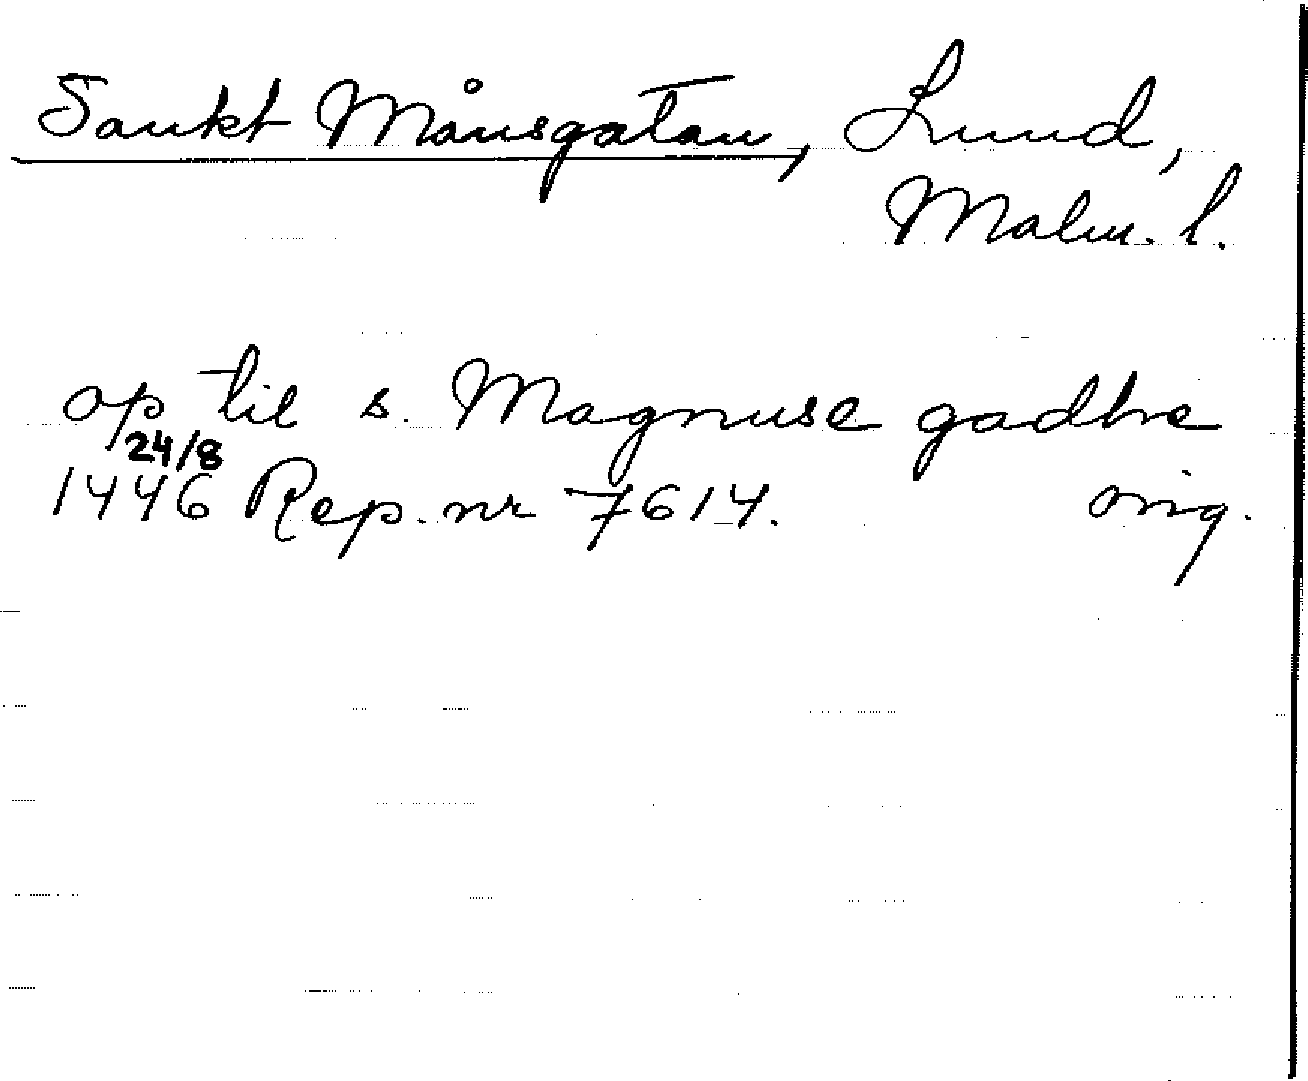 Sankt Månsgatan, Lund,
Malm. l.
op til s. Magnuse gadhe
24/8
1446 Rep. nr 7614. orig.